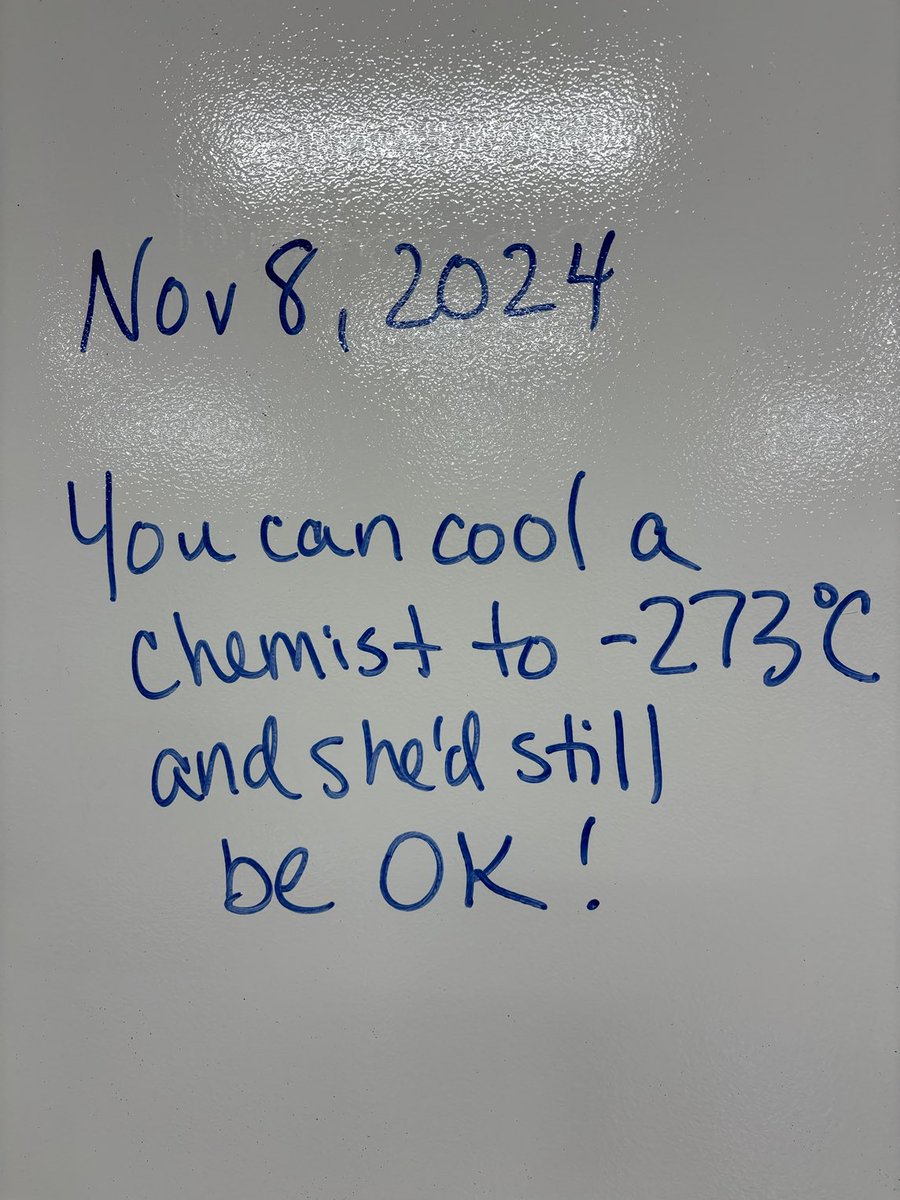 Nov 8, 2024
You can cool a
chemist to -273°C
and she'd still
be OK!